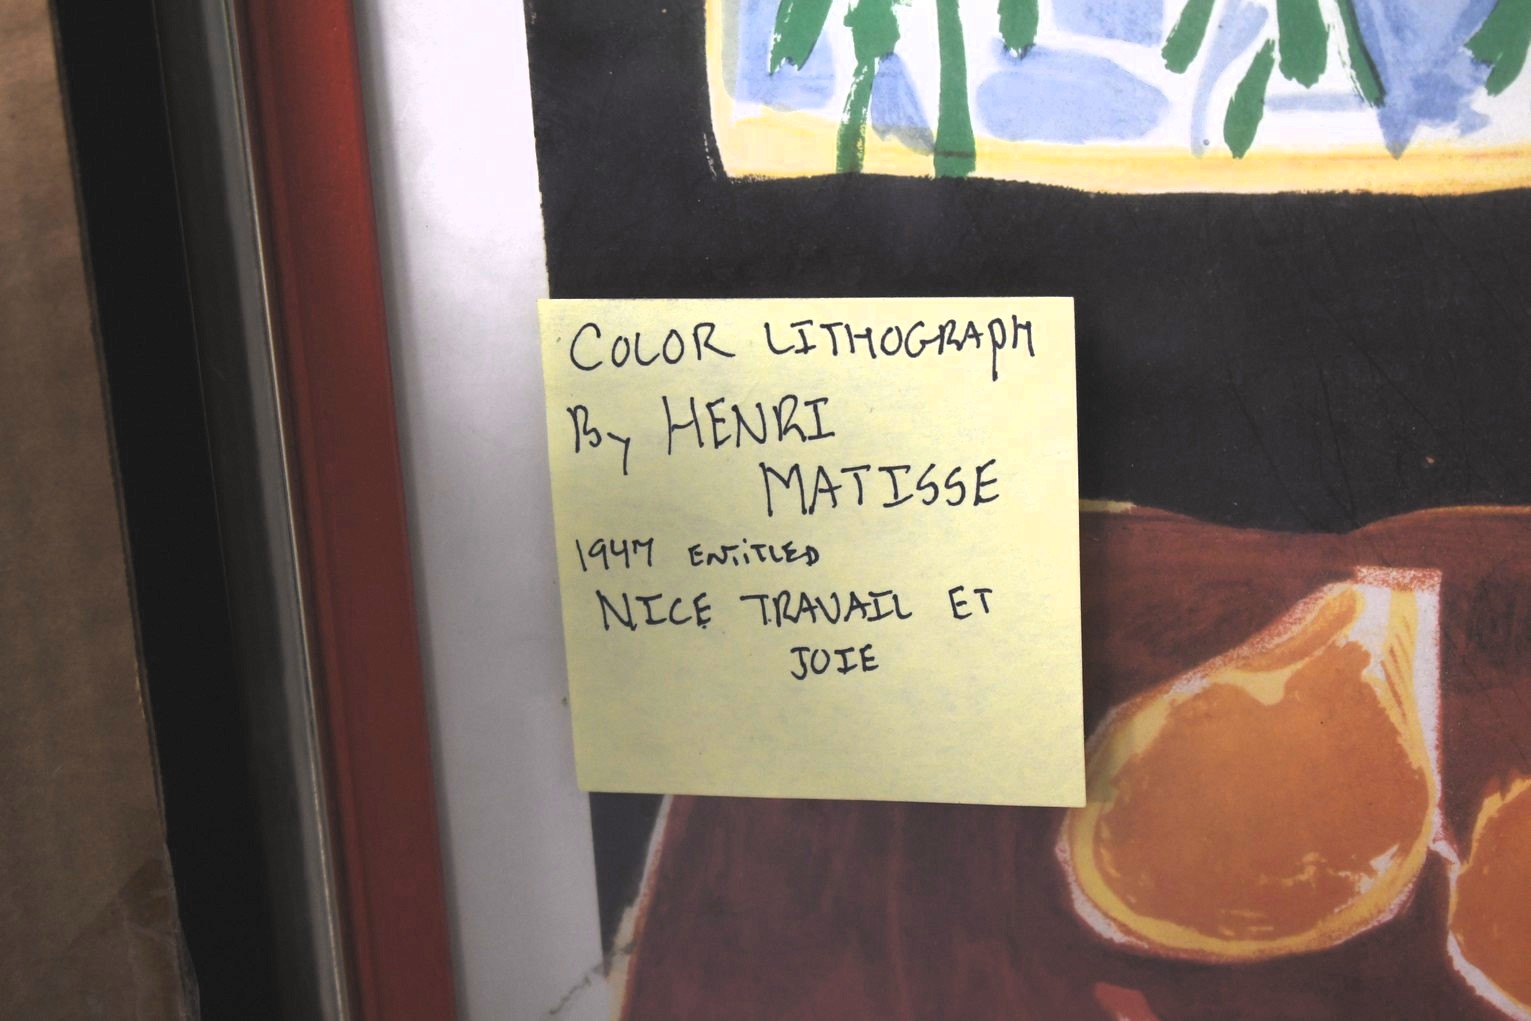 COLOR LITHOGRAPH
By HENRI
MATISSE
1947 ENTITLED
NICE TRAVAIL ET
JOIE